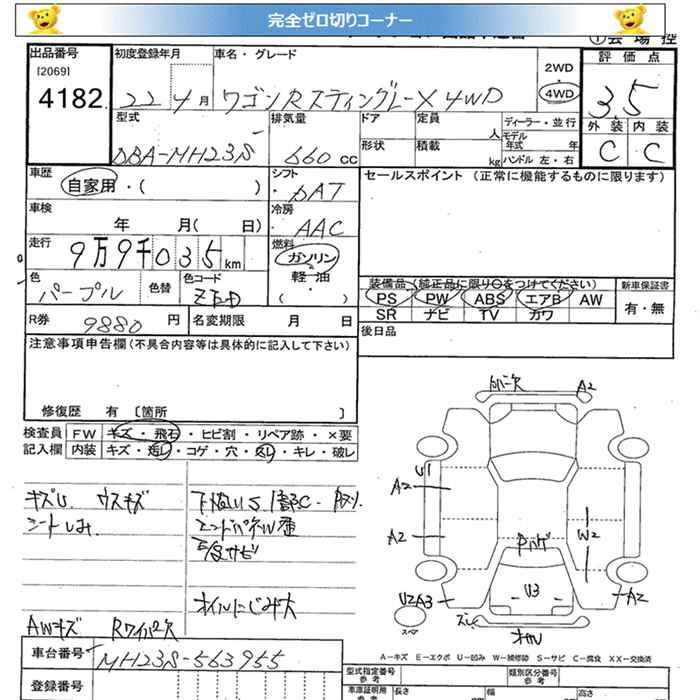 完全ゼロ切りコーナー
出品番号 [2069] 4182
初度登録年月 22 4月
車名・グレード ワゴンRスティングレーX 4WD
2WD・4WD
評価点 3.5
外装 内装
C C
型式 DBA-MH23S
排気量 660 cc
ドア 定員 人
形状 積載 kg
ディーラー・並行
モデル年式 年
ハンドル 左・右
車歴 自家用・( )
シフト DAT
セールスポイント (正常に機能するものに限ります)
車検 年 月( 日)
冷房 AAC
走行 9万9千035km
燃料 ガソリン・軽油・( )
色 パープル 色替 色コード
装備品 (純正品に限り○をつけてください)
PS PW ABS エアB AW
SR ナビ TV カワ
新車保証書 有・無
R券 9880円 名変期限 月 日
後日品
注意事項申告欄 (不具合内容等は具体的に記入して下さい)
修復歴 有 [箇所 ]
検査員 FW キズ・飛石・ヒビ割・リペア跡・×要
記入欄 内装 キズ・汚レ・コゲ・穴・スレ・キレ・破レ
キズU ウスキズ
シートしみ
エンドパネルW歪
下廻サビ
オイルにじみ大
AWキズ Rワイパ欠
車台番号 MH23S-563955
登録番号
A2
U1
A2
A2
W2
U3
U2A3
A2
スペア
A-キズ E-エクボ U-凹み W-補修跡 S-サビ C-腐食 XX-交換済
型式指定番号 参考
類別区分番号 参考
車庫証明用 参考 長さ 幅 高さ